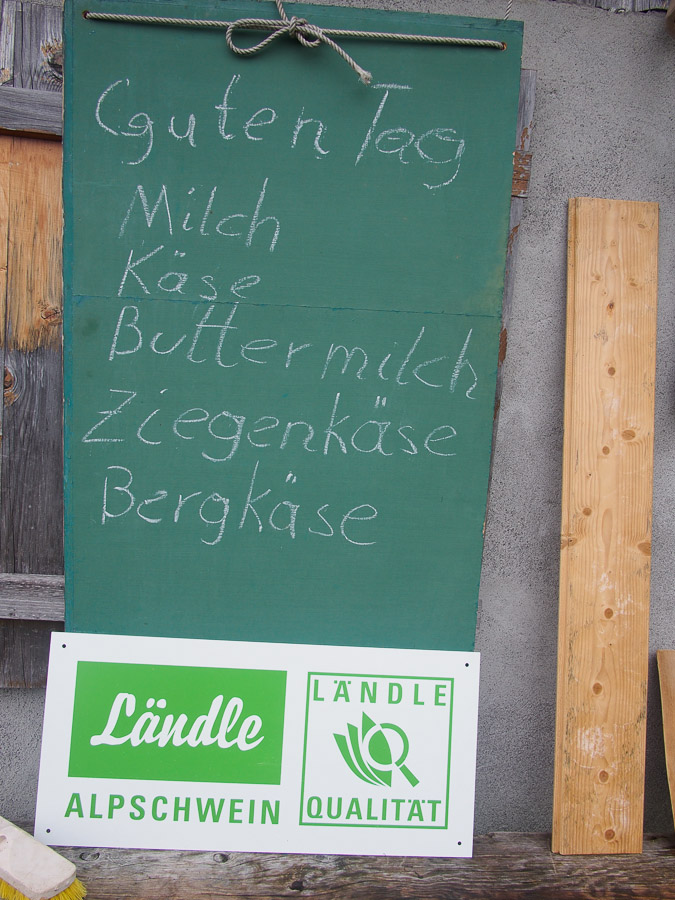 Guten Tag
Milch
Käse
Buttermilch
Ziegenkäse
Bergkäse
Ländle
ALPSCHWEIN
LÄNDLE
QUALITÄT